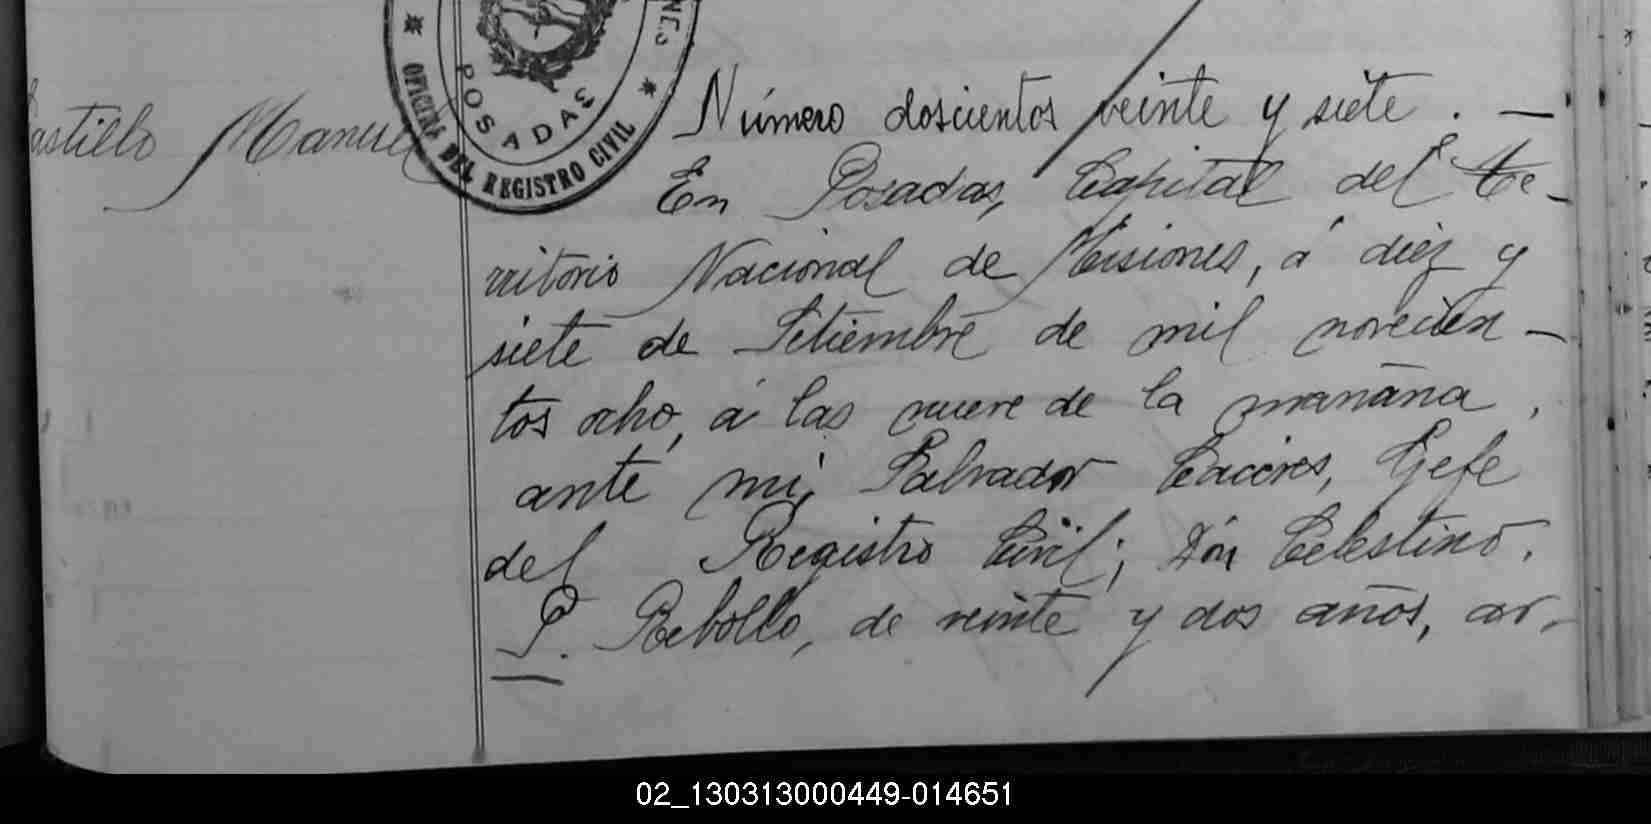 Castillo Manuel
OFICINA DEL REGISTRO CIVIL
POSADAS
Número doscientos veinte y siete. —
En Posadas, Capital del Te-
rritorio Nacional de Misiones, á diez y
siete de Setiembre de mil novecien-
tos ocho, á las nueve de la mañana,
ante mí, Salvador Cáceres, Gefe
del Registro Civil; Dón Celestino.
P. Rebollo, de veinte y dos años, ar-
02_130313000449-014651